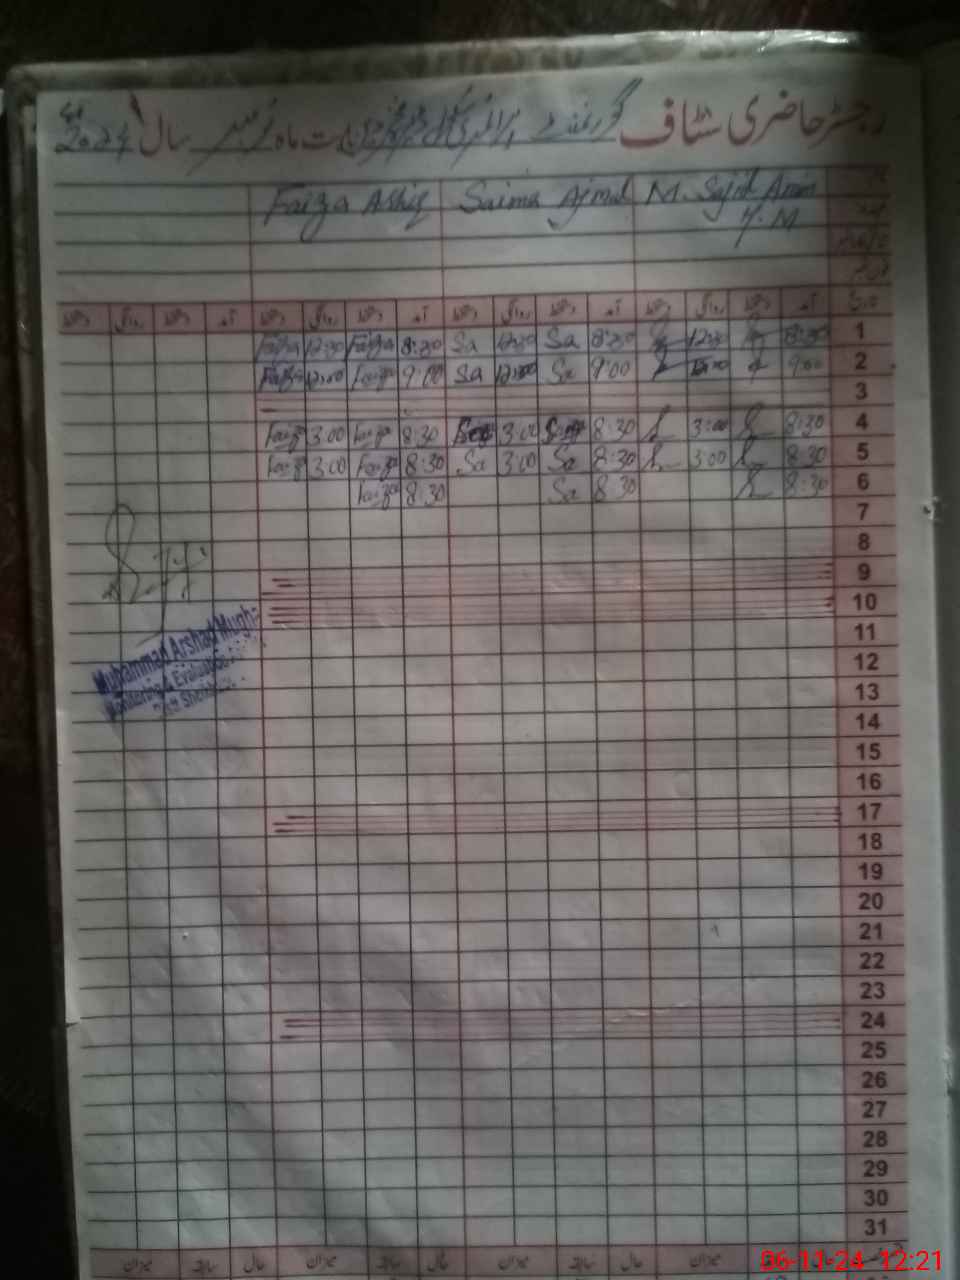 رجسٹر حاضری سٹاف گورنمنٹ پرائمری سکول بابت ماہ نومبر سال 2024ء
Faiza Ashiq Saima Ajmal M. Sajid Amin
H.M
دستخط روانگی دستخط آمد دستخط روانگی دستخط آمد دستخط روانگی دستخط آمد دستخط روانگی دستخط آمد تاریخ
Faiza 12:30 Faiza 8:30 Sa 12:30 Sa 8:30 12:30 8:30 1
Faiza 12:00 Faiza 9:00 Sa 12:00 Sa 9:00 12:00 9:00 2
3
Faiza 3:00 Faiza 8:30 3:00 8:30 3:00 8:30 4
Faiza 3:00 Faiza 8:30 Sa 3:00 Sa 8:30 3:00 8:30 5
Faiza 8:30 Sa 8:30 8:30 6
7
8
9
10
11
Muhammad Arshad Mugh
Monitoring & Evaluation
12
13
14
15
16
17
18
19
20
21
22
23
24
25
26
27
28
29
30
31
میزان سابقہ حال میزان سابقہ حال میزان سابقہ حال میزان
06-11-24 12:21